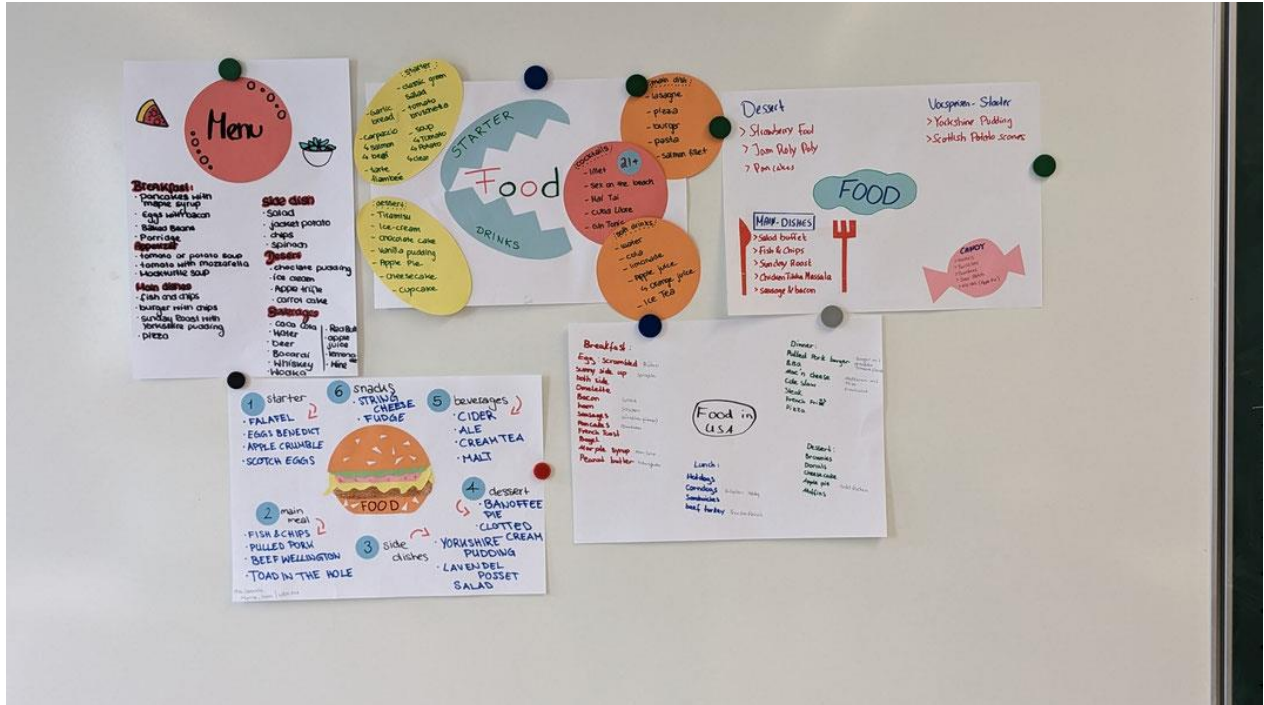 Menu
Breakfast:
· Pancakes with
maple syrup
· Eggs with bacon
· Baked Beans
· Porridge
Appetizer
· tomato or potato soup
· tomato with mozzarella
· Mockturtle soup
Main dishes
· fish and chips
· burger with chips
· Sunday Roast with
Yorkshire pudding
· pizza
Side dish
· Salad
· jacket potato
· chips
· spinach
Desert
· choclate pudding
· ice cream
· Apple trifle
· carrot cake
Beverages
· coca cola
· Water
· beer
· Bacardi
· Whiskey
· Wodka
· Red Bull
· apple
juice
· lemona
de
· Wine
starter
- classic green
salad
- tomato
bruschetta
- soup
↳ Tomato
↳ Potato
↳ clear
- garlic
bread
- carpaccio
↳ salmon
↳ beef
- tarte
flambée
STARTER
Food
DRINKS
dessert:
- Tiramisu
- Ice-cream
- chocolate cake
- Vanilla pudding
- Apple Pie
- cheesecake
- cupcake
main dish
- lasagne
- pizza
- burger
- pasta
- salmon fillet
cocktails
21+
- lillet
- sex on the beach
- Mai Tai
- Cuba Libre
- Gin Tonic
soft drinks
- water
- cola
- limonade
- Apple juice
↳ Orange juice
- Ice Tea
Dessert
> Strawberry Fool
> Jam Roly Poly
> Pancakes
Vorspeisen - Starter
> Yorkshire Pudding
> Scottish Potato scones
FOOD
MAIN-DISHES
> Salad buffet
> Fish & Chips
> Sunday Roast
> Chicken Tikka Massala
> sausage & bacon
CANDY
1 starter
· FALAFEL
· EGGS BENEDICT
· APPLE CRUMBLE
· SCOTCH EGGS
6 snacks
· STRING
CHEESE
· FUDGE
5 beverages
· CIDER
· ALE
· CREAM TEA
· MALT
FOOD
2 main
meal
· FISH & CHIPS
· PULLED PORK
· BEEF WELLINGTON
· TOAD IN THE HOLE
3 side
dishes
· YORKSHIRE
PUDDING
· LAVENDEL
POSSET
SALAD
4 dessert
· BANOFFEE
PIE
· CLOTTED
CREAM
Breakfast:
Egg: scrambled
Sunny side up
both side
Omelette
Bacon
ham
Sausages
Pancakes
French Toast
Bagel
Marple syrup
Peanut butter
Food in
USA
Lunch:
Hotdogs
Corndogs
Sandwiches
beef turkey
Dinner:
Pulled Pork burger
BBQ
Mac'n cheese
Cole slaw
Steak
French fries
Pizza
Dessert:
Brownies
Donuts
Cheesecake
Apple pie
Muffins